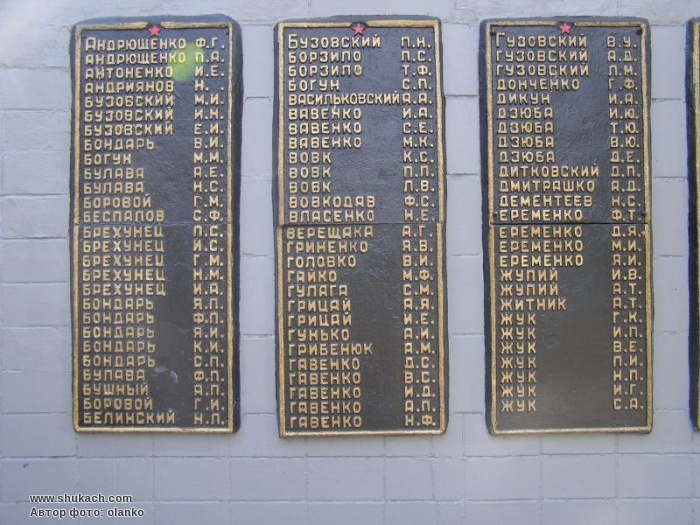 Андрющенко Ф.Г.
Андрющенко П.А.
Антоненко И.Е.
Андриянов Н.
Бузовский М.И.
Бузовский И.Н.
Бузовский Е.И.
Бондарь В.И.
Богун М.М.
Булава А.Е.
Булава Н.С.
Боровой Г.М.
Беспалов С.Ф.
Брехунец П.С.
Брехунец И.С.
Брехунец Г.М.
Брехунец Н.М.
Брехунец И.А.
Бондарь Я.П.
Бондарь Ф.П.
Бондарь Я.И.
Бондарь К.И.
Бондарь С.П.
Булава Ф.П.
Бушный А.П.
Боровой Г.И.
Белинский Н.П.
Бузовский П.Н.
Борзило П.С.
Борзило Т.Ф.
Богун С.П.
Васильковский А.А.
Вавенко И.А.
Вавенко С.Е.
Вавенко М.К.
Вовк К.С.
Вовк П.П.
Вовк Л.В.
Вовкодав Ф.С.
Власенко Н.Е.
Верещака А.Г.
Гриненко Я.В.
Головко В.И.
Гайко М.Ф.
Гулага С.М.
Грицай А.Я.
Грицай И.Е.
Гунько А.И.
Гривенюк А.М.
Гавенко Д.С.
Гавенко В.С.
Гавенко И.Д.
Гавенко А.П.
Гавенко Н.Ф.
Гузовский В.У.
Гузовский А.Д.
Гузовский П.М.
Донченко Г.Ф.
Дикун И.А.
Дзюба И.Ю.
Дзюба Т.Ю.
Дзюба В.Ю.
Дзюба Д.Е.
Дитковский Д.П.
Дмитрашко А.Д.
Дементеев Н.С.
Еременко Ф.Т.
Еременко Д.Я.
Еременко М.И.
Еременко А.И.
Жупий И.В.
Жупий А.Т.
Житник А.Т.
Жук Г.К.
Жук И.П.
Жук В.Е.
Жук П.И.
Жук Н.П.
Жук И.Г.
Жук С.А.
www.shukach.com
Автор фото: olanko